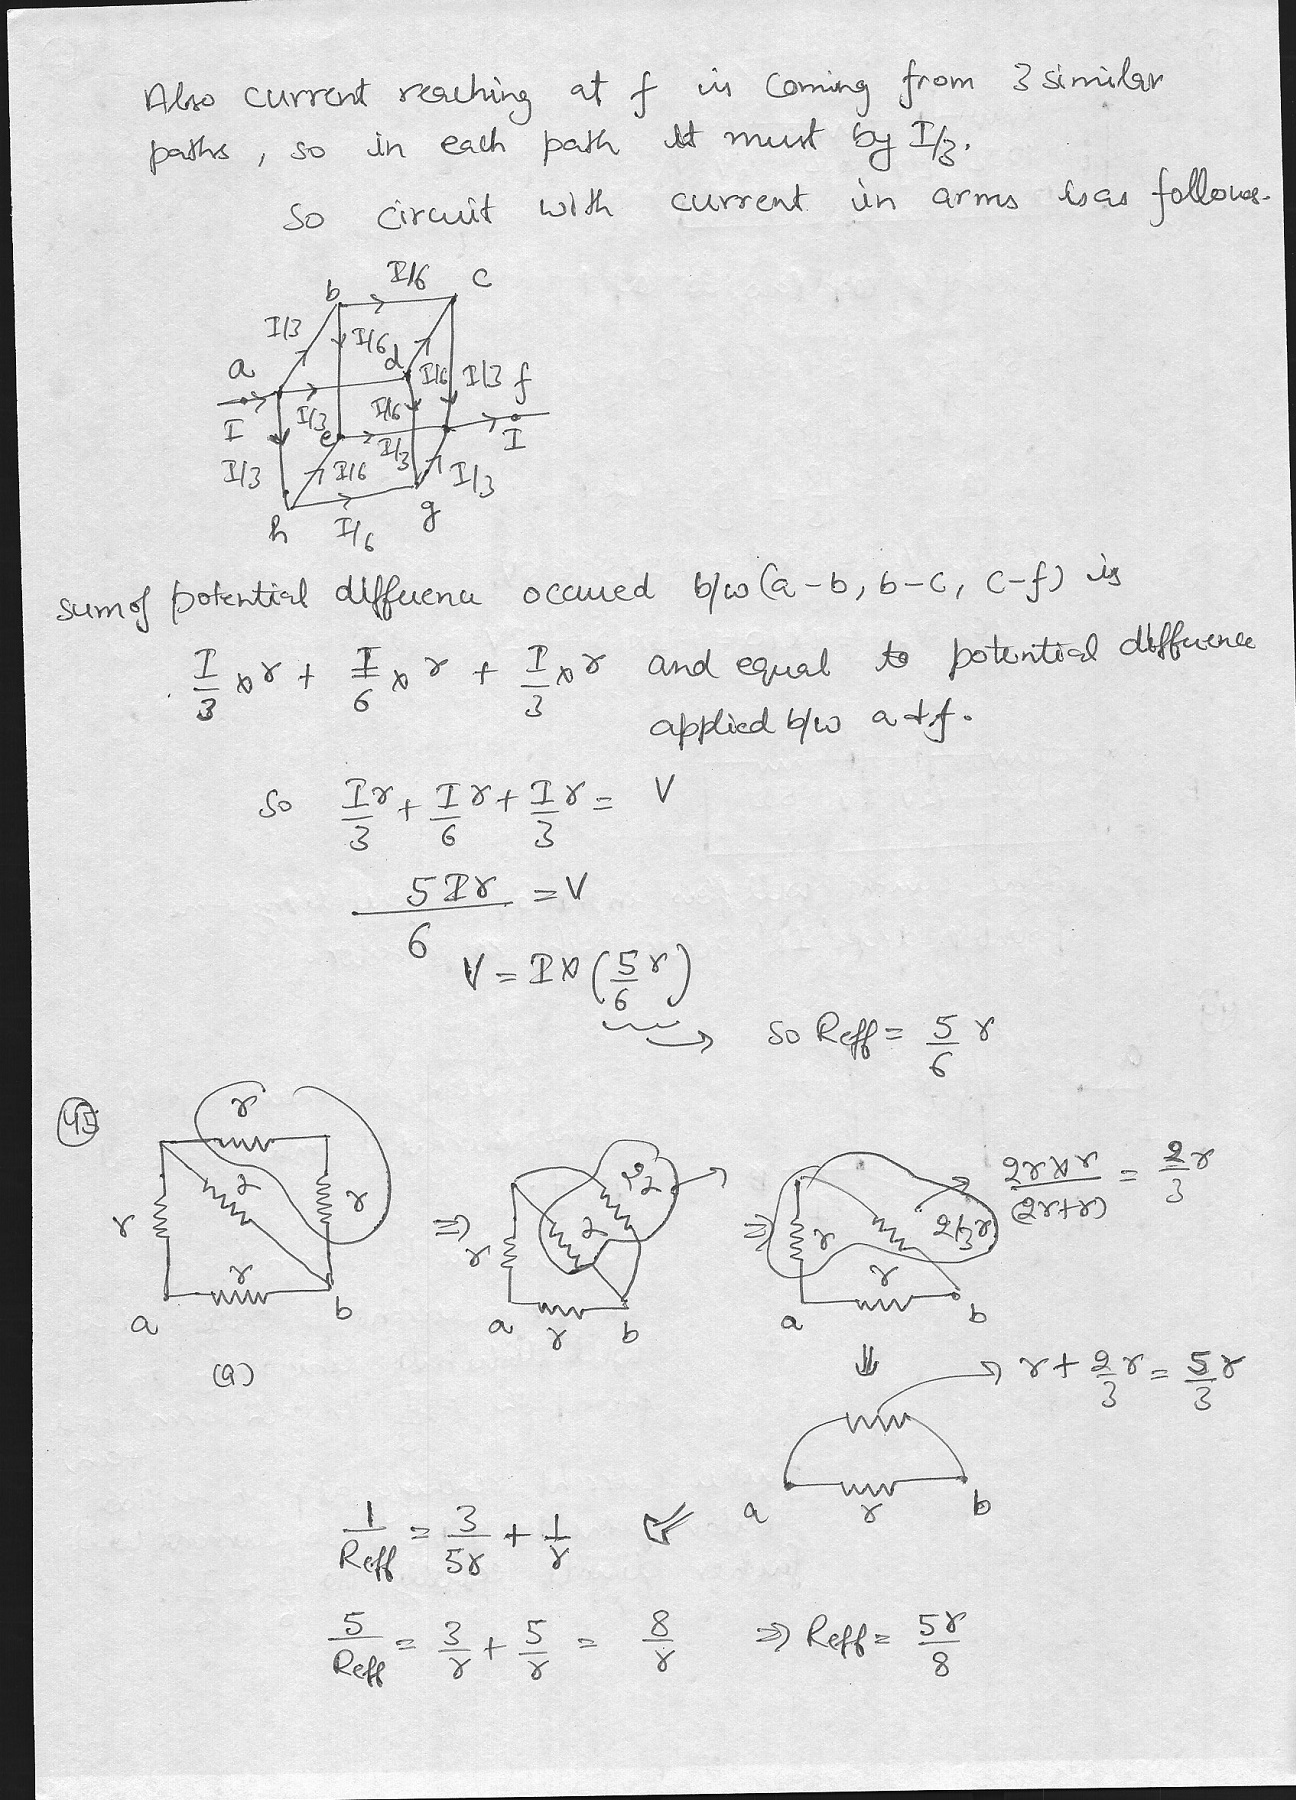 Also current reaching at f is coming from 3 similar
paths, so in each path it must by I/3.
So circuit with current in arms is as follows.
I/6
b
c
I/3
I/6
a
d
I/6
I/3
f
I
I/3
I/6
e
I/3
I
I/3
I/6
I/3
h
I/6
g
sum of potential difference occured b/w (a-b, b-c, c-f) is
I/3 × r + I/6 × r + I/3 × r and equal to potential difference
applied b/w a & f.
So Ir/3 + I/6 r + I/3 r = V
5Ir/6 = V
V = I × (5/6 r)
So Reff = 5/6 r
45
r
r
r
r
r
a
b
(a)
⇒
r2
r
r
r
a
b
⇒
2r×r/(2r+r) = 2/3 r
2/3r
r
r
a
b
⇓
r + 2/3 r = 5/3 r
a
r
b
1/Reff = 3/5r + 1/r
5/Reff = 3/r + 5/r = 8/r ⇒ Reff = 5r/8